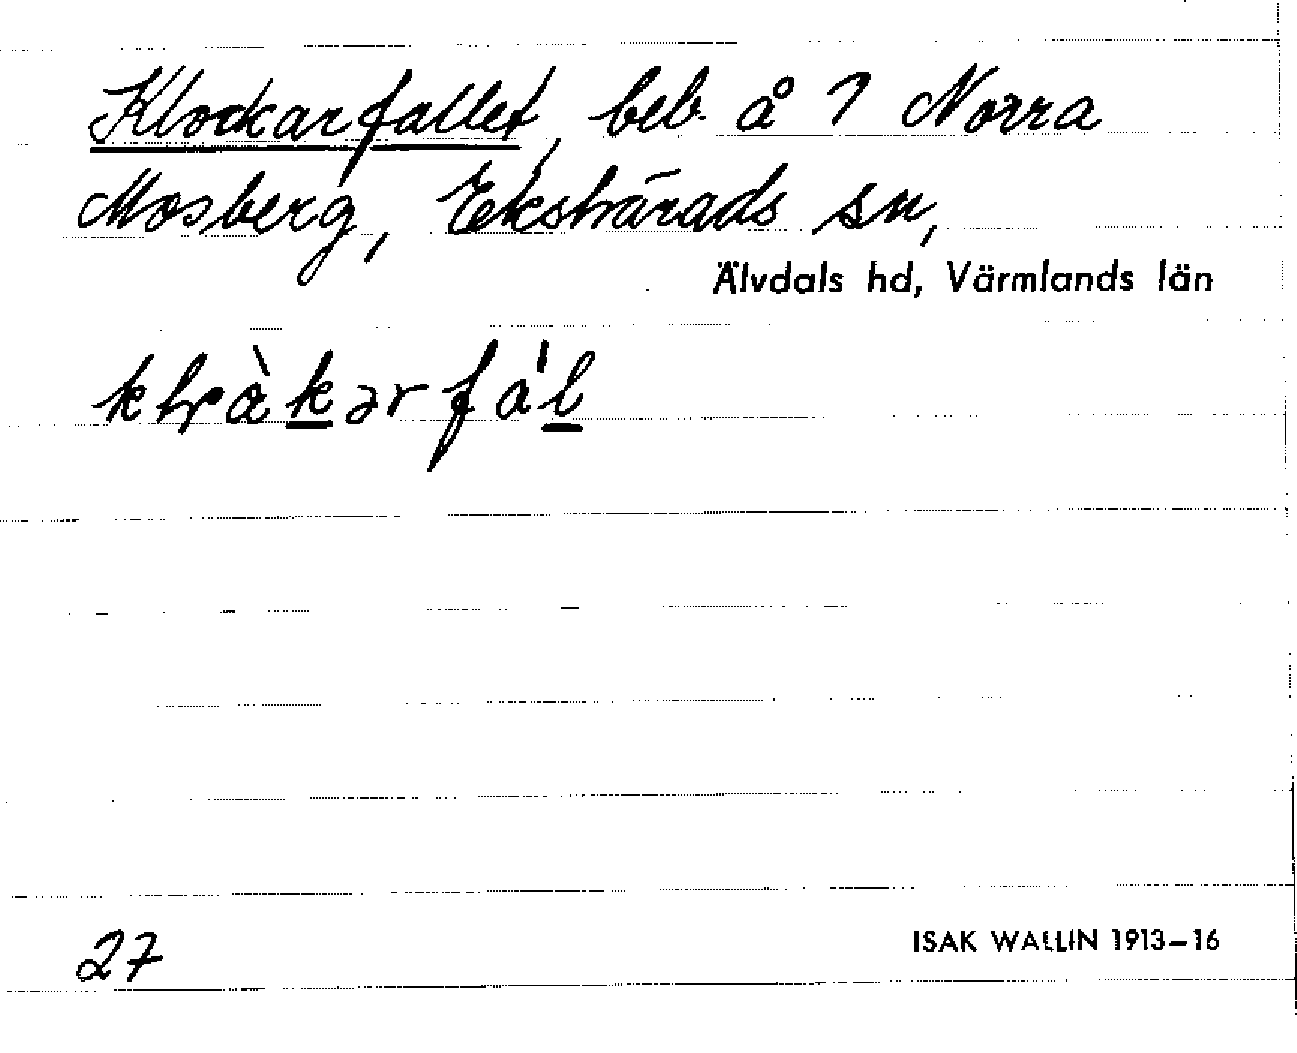 Klockarfallet, beb. å ? Norra
Mosberg, Ekshärads sn,
Älvdals hd, Värmlands län
27
ISAK WALLIN 1913–16